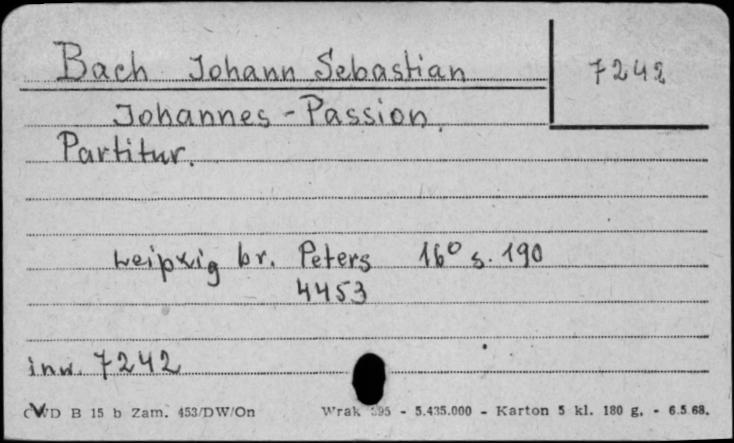 Bach Johann Sebastian
7242
Johannes-Passion.
Partitur.
Leipzig br. Peters 16° s. 190
4453
inw. 7242
CWD B 15 b Zam. 453/DW/On - 5.435.000 - Karton 5 kl. 180 g. - 6.5.68.